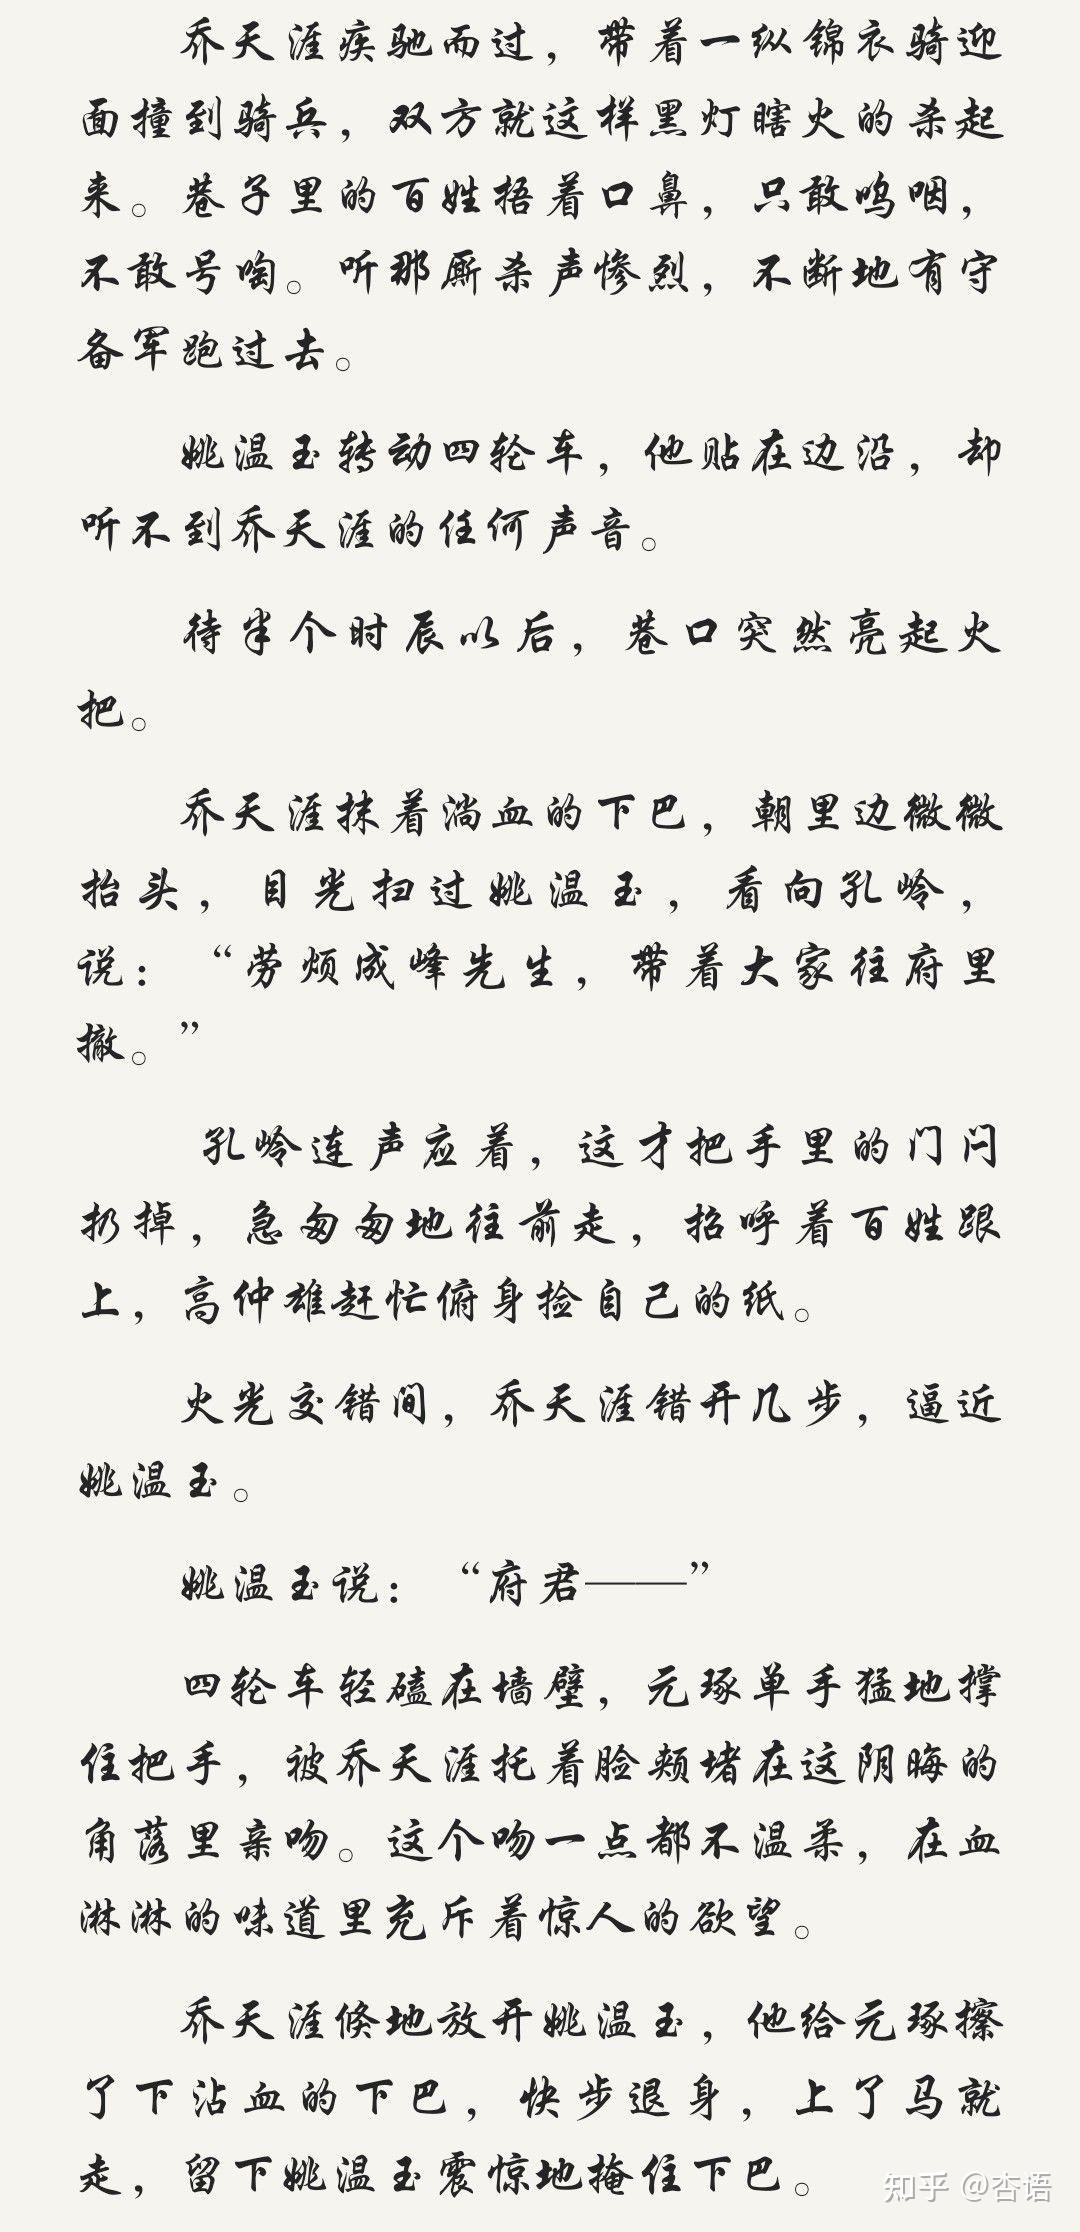 乔天涯疾驰而过，带着一纵锦衣骑迎
面撞到骑兵，双方就这样黑灯瞎火的杀起
来。巷子里的百姓捂着口鼻，只敢呜咽，
不敢号啕。听那厮杀声惨烈，不断地有守
备军跑过去。
姚温玉转动四轮车，他贴在边沿，却
听不到乔天涯的任何声音。
待半个时辰以后，巷口突然亮起火
把。
乔天涯抹着淌血的下巴，朝里边微微
抬头，目光扫过姚温玉，看向孔岭，
说：“劳烦成峰先生，带着大家往府里
撤。”
孔岭连声应着，这才把手里的门闩
扔掉，急匆匆地往前走，招呼着百姓跟
上，高仲雄赶忙俯身捡自己的纸。
火光交错间，乔天涯错开几步，逼近
姚温玉。
姚温玉说：“府君——”
四轮车轻磕在墙壁，元琢单手猛地撑
住把手，被乔天涯托着脸颊堵在这阴晦的
角落里亲吻。这个吻一点都不温柔，在血
淋淋的味道里充斥着惊人的欲望。
乔天涯倏地放开姚温玉，他给元琢擦
了下沾血的下巴，快步退身，上了马就
走，留下姚温玉震惊地掩住下巴。
知乎 @杏语